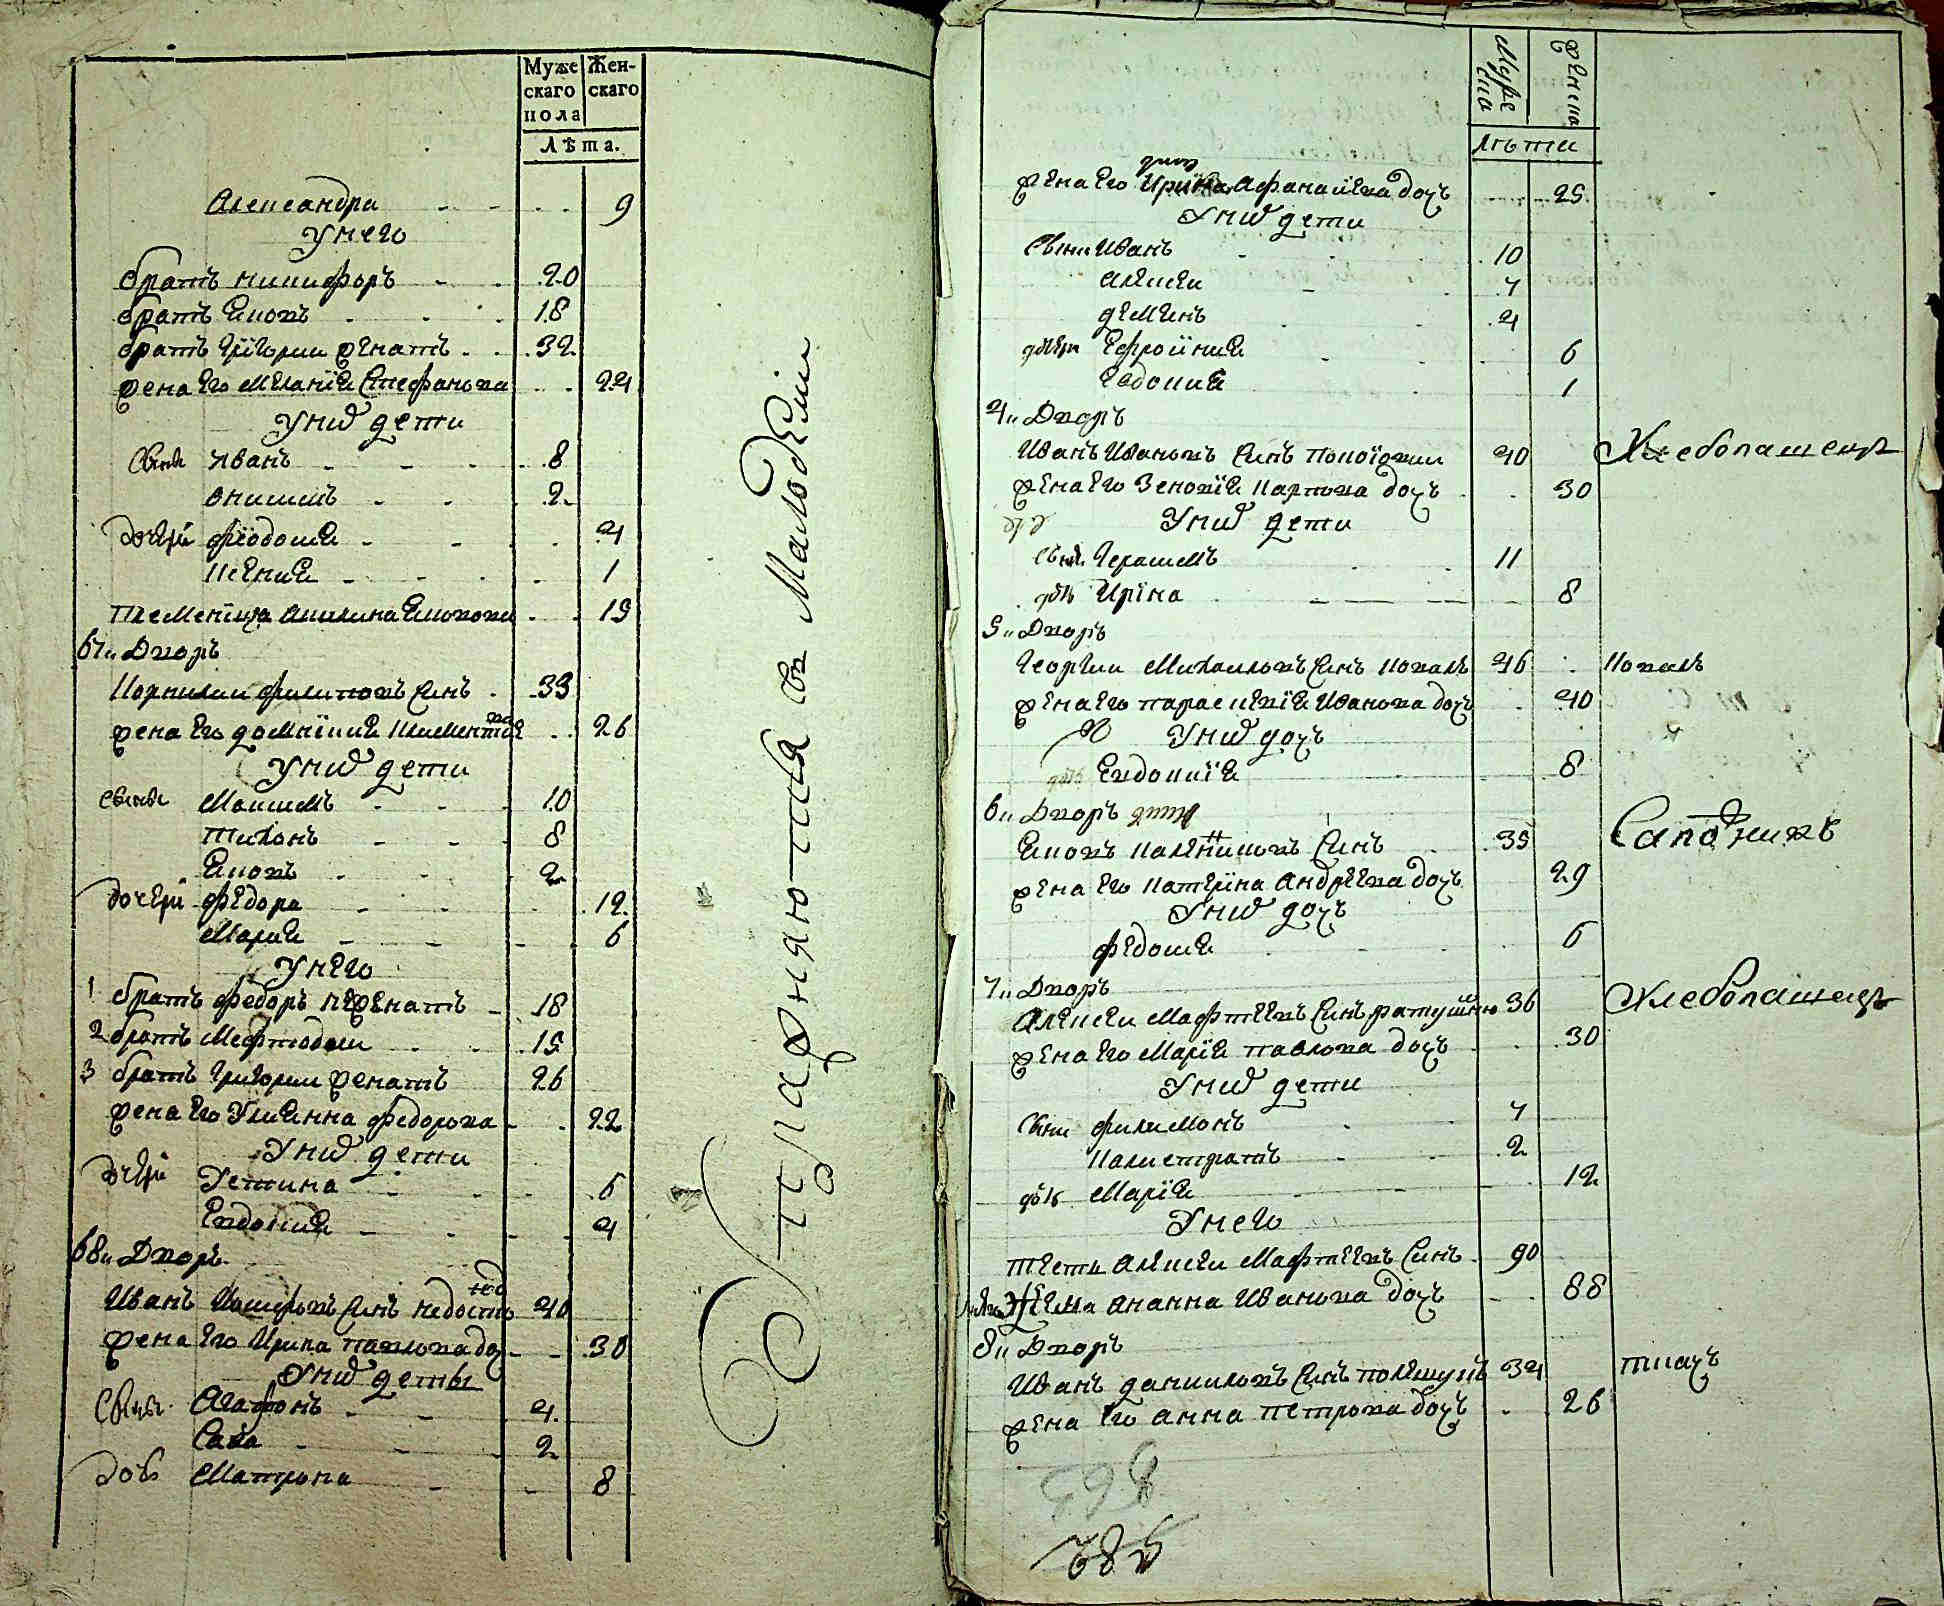 Муже Жен-
скаго скаго
пола
Лѣта.
Александра 9
У него
братъ Никифоръ 20
братъ Яковъ 18
братъ Григории женатъ 32
жена его Меланія Стефанова 24
У них дети
Сыни Иванъ 8
Онисимъ 2
дочери Феодосия 4
Ксения 1
племеница Акилина Яковова 15
67и Дворъ
Корнилии Филиповъ синъ 33
жена его Домникия Климентова 26
У них дети
сыни Максимъ 10
Тихонъ 8
Яковъ 2
дочери Федора 12
Мария 6
У него
1 братъ Федоръ неженатъ 18
2 братъ Мефтодии 15
3 братъ Григории женатъ 26
жена его Улиянна Федорова 22
У них дети
дочери Устина 6
Евдокия 4
68и Дворъ
Иванъ Иосифовъ синъ 40
жена его Ирина Павлова доч 30
У них деты
Сыны Агафонъ 4
Сава 2
дочь Матрона 8
Упражняются въ Малоделии
Мужеска Женска
лѣти
жена его Ирина Афанасиева дочъ 25
У них дети
Сыни Иванъ 10
Алексеи 7
Демянъ 4
дочери Ефросиния 6
Евдокия 1
4и Дворъ
Иванъ Ивановъ синъ 40 Хлебопашецъ
жена его Зеновия Карпова дочъ 30
У них дети
сынъ Герасимъ 11
дочь Ирина 8
5и Дворъ
Георгии Михаиловъ синъ Коваль 46 Коваль
жена его Параскевия Иванова дочъ 40
У них дочъ
дочь Евдокия 8
6и Дворъ
Яковъ синъ 35 Сапожникъ
жена его Катерина Андреева дочъ 29
У них дочъ
Федосия 6
7и Дворъ
Алексеи Мафтеевъ синъ 36 Хлебопашецъ
жена его Мария Павлова дочъ 30
У них дети
сыни Филимонъ 7
Калистратъ 2
дочь Мария 12
У него
тесть Алексеи Мафтеевъ синъ 90
Ананна Иванова дочъ 88
8и Дворъ
Иванъ Данииловъ синъ Полещукъ 34 ткачъ
жена его Анна Петрова дочъ 26
385